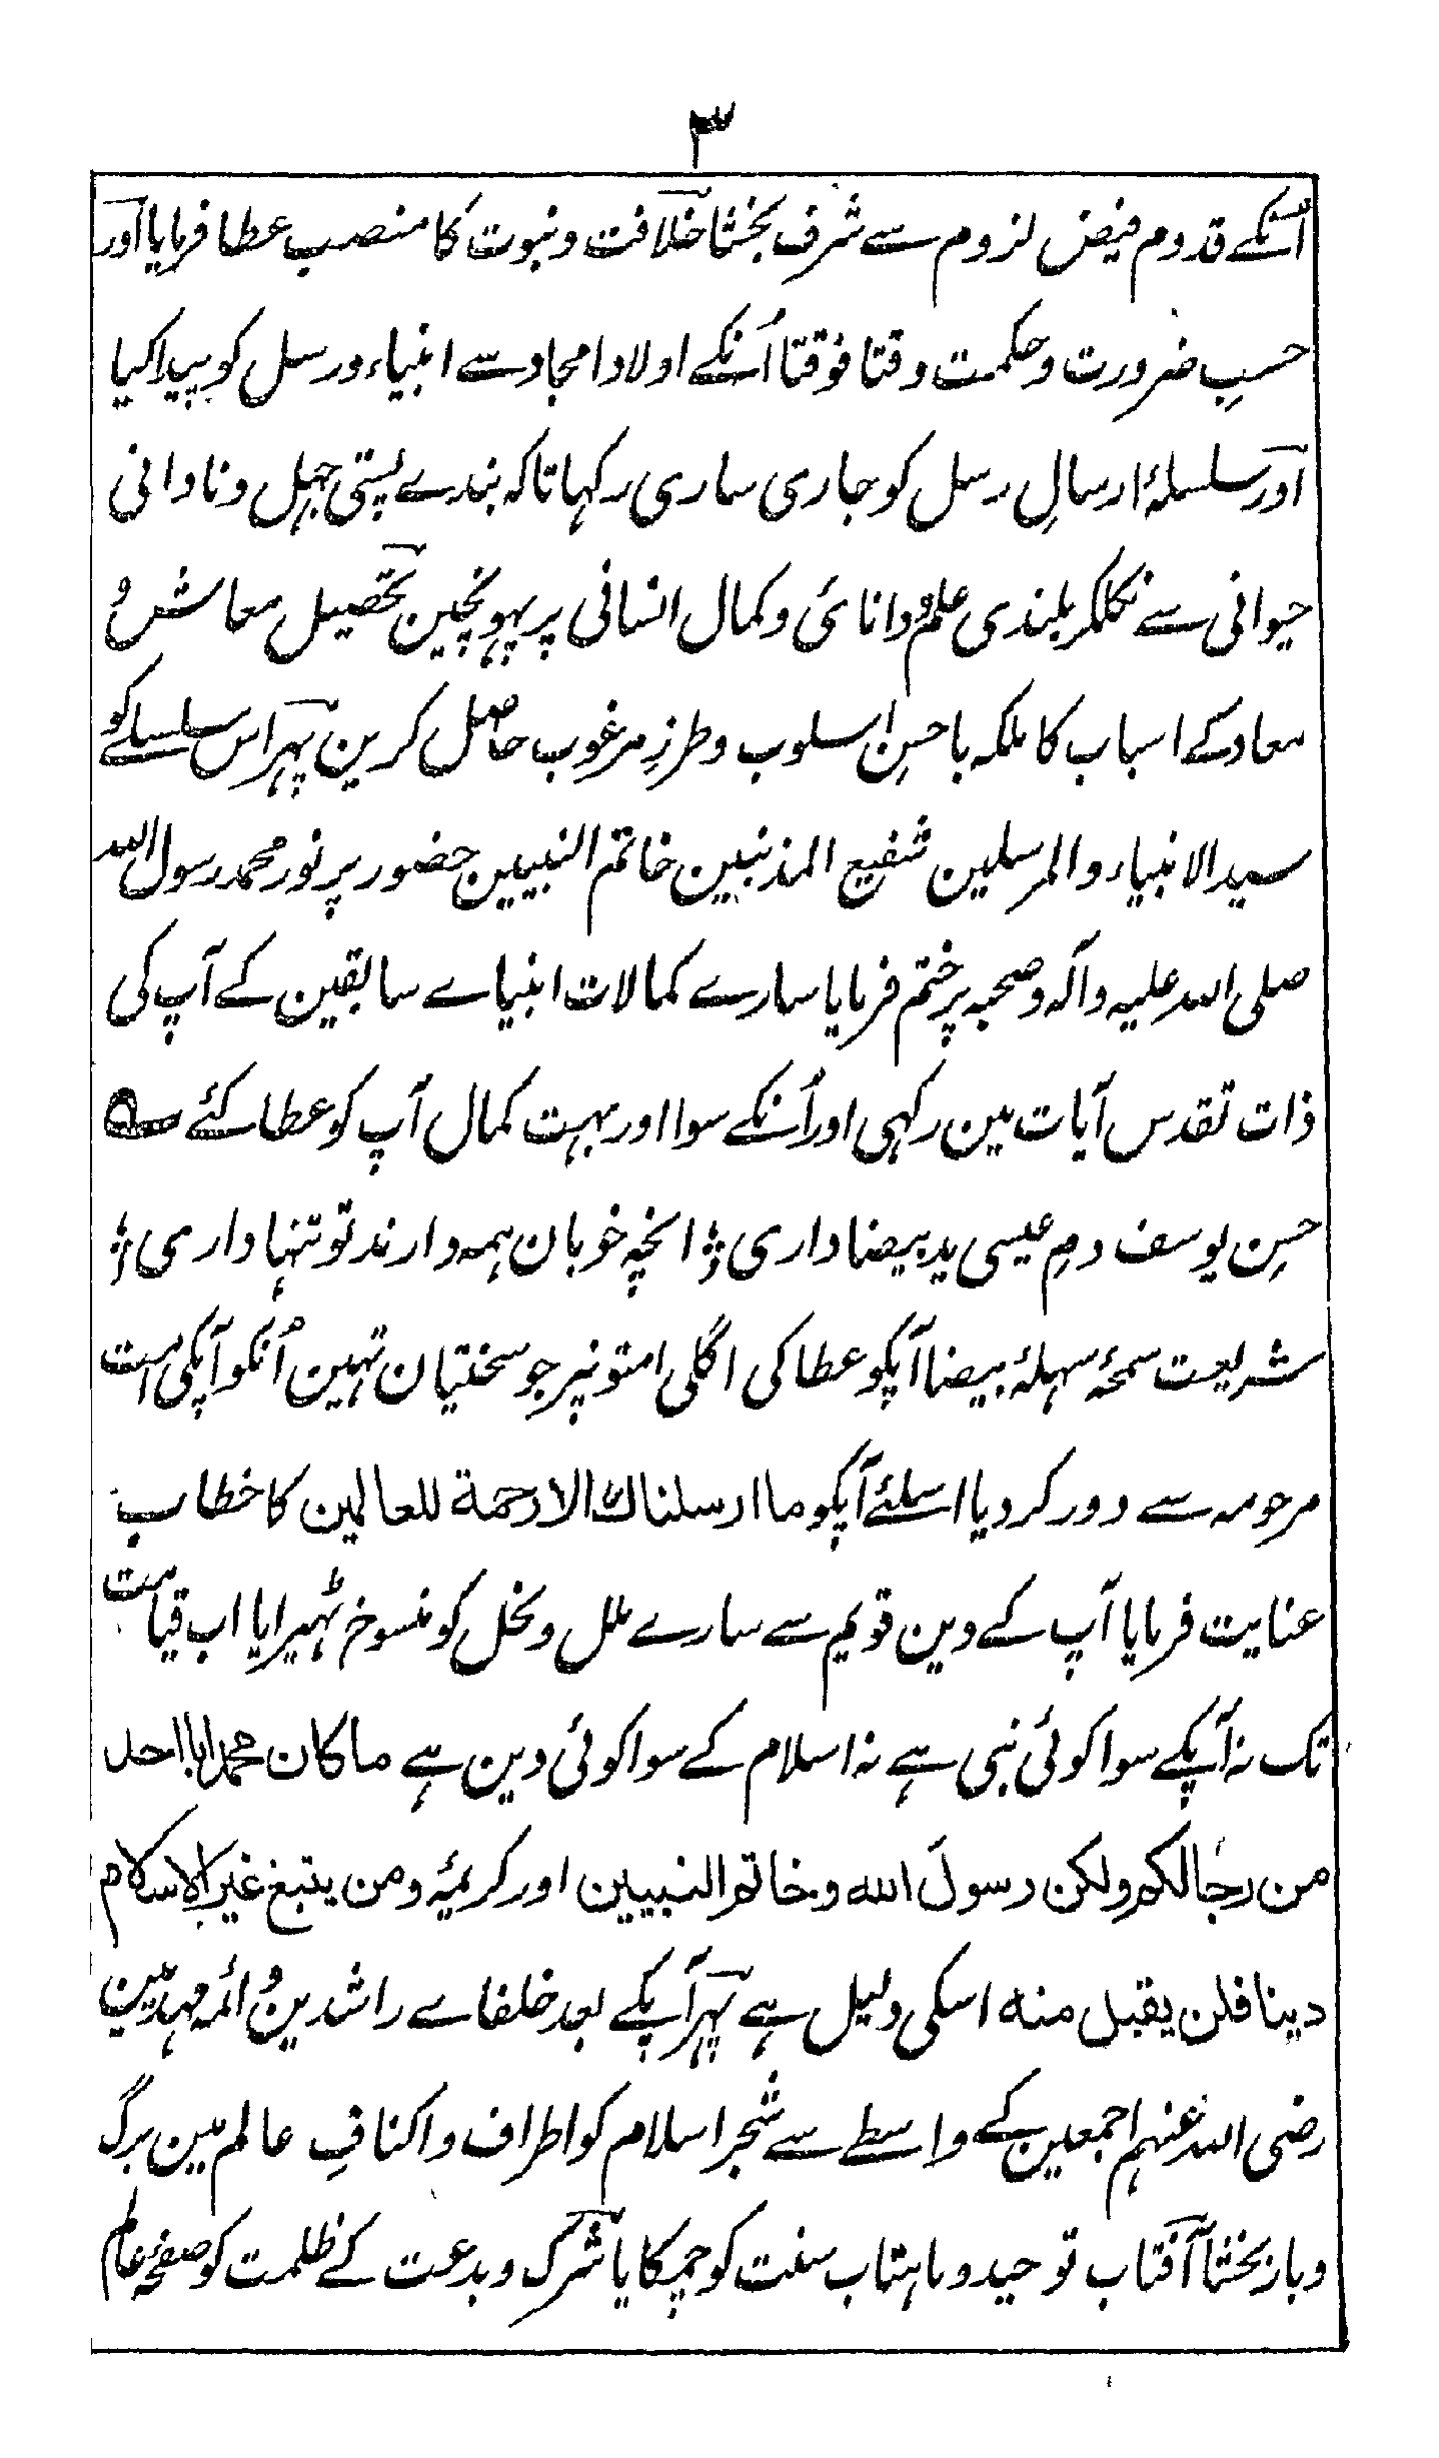 ۳
اُنکے قدوم فیض لزوم سے شرف بخشا خلافت و نبوت کا منصب عطا فرمایا اور
حسبِ ضرورت و حکمت وقتا فوقتا اُنکے اولاد امجاد سے انبیاء و رسل کو پیدا کیا
اور سلسلۂ ارسالِ رسل کو جاری ساری رکہا تاکہ بندے پستی جہل و نادانی
حیوانی سے نکلکر بلندی علم و دانائی و کمال انسانی پر پہونچین تحصیل معاش و
معاد کے اسباب کا ملکہ باحسنِ اسلوب و طرزِ مرغوب حاصل کرین پہر اس سلسلے کو
سید الانبیاء و المرسلین شفیع المذنبین خاتم النبیین حضور پر نور محمد رسول اللہ
صلی اللہ علیہ و آلہ و صحبہ پر ختم فرمایا سارے کمالات انبیاے سابقین کے آپ کی
ذات تقدس آیات مین رکہی اور اُنکے سوا اور بہت کمال آپ کو عطا کئے ؎
حسنِ یوسف دمِ عیسی ید بیضا داری ؛ انچہ خوبان ہمہ دارند تو تنہا داری ؛
شریعت سمحۂ سہلۂ بیضا آپکو عطا کی اگلی امتونپر جو سختیان تہین اُنکو آپکی امت
مرحومہ سے دور کردیا اسلئے آپکو ما ارسلناك الا رحمة للعالمین کا خطاب
عنایت فرمایا آپ کے دین قویم سے سارے ملل و نحل کو منسوخ ٹہیرایا اب قیامت
تک نہ آپکے سوا کوئی نبی ہے نہ اسلام کے سوا کوئی دین ہے ماکان محمد ابا احد
من رجالکم ولکن رسولَ الله وخاتم النبیین اور کریمۂ ومن یبتغ غیر الاسلام
دینا فلن یقبل منه اسکی دلیل ہے پہر آپکے بعد خلفاے راشدین و ائمہ مہدیین
رضی اللہ عنہم اجمعین کے واسطے سے شجر اسلام کو اطراف و اکنافِ عالم مین برگ
و بار بخشا آفتاب توحید و ماہتاب سنت کو چمکایا شرک و بدعت کے ظلمت کو صفحۂ عالم